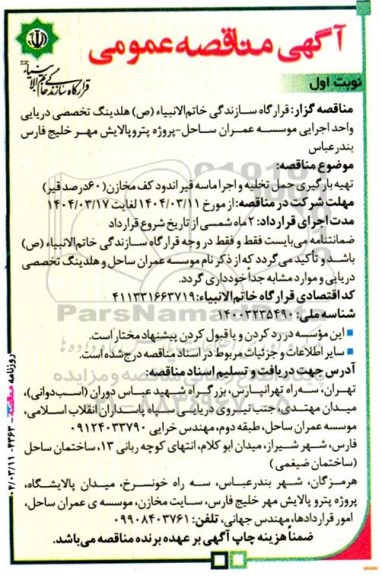 آگهی مناقصه عمومی
قرارگاه سازندگی خاتم الانبیاء
نوبت اول
مناقصه گزار: قرارگاه سازندگی خاتم‌الانبیاء (ص) هلدینگ تخصصی دریایی
واحد اجرایی موسسه عمران ساحل-پروژه پتروپالایش مهر خلیج فارس
بندرعباس
موضوع مناقصه:
تهیه بارگیری حمل تخلیه و اجرا ماسه قیر اندود کف مخازن (۶۰درصد قیر)
مهلت شرکت در مناقصه: از مورخ ۱۴۰۴/۰۳/۱۱ لغایت ۱۴۰۴/۰۳/۱۷
مدت اجرای قرارداد: ۲ ماه شمسی از تاریخ شروع قرارداد
ضمانتنامه می‌بایست فقط و فقط در وجه قرارگاه سازندگی خاتم‌الانبیاء (ص)
باشد و تأکید می‌گردد که از ذکر نام موسسه عمران ساحل و هلدینگ تخصصی
دریایی و موارد مشابه جداً خودداری گردد.
کد اقتصادی قرارگاه خاتم‌الانبیاء: ۴۱۱۳۳۱۶۶۳۷۱۹
شناسه ملی: ۱۴۰۰۳۲۳۵۴۹۰
این مؤسسه در رد کردن و یا قبول کردن پیشنهاد مختار است.
سایر اطلاعات و جزئیات مربوط در اسناد مناقصه درج شده است.
آدرس جهت دریافت و تسلیم اسناد مناقصه:
تهران، سه‌راه تهرانپارس، بزرگراه شهید عباس دوران (اسب‌دوانی)،
میدان مهتدی، جنب نیروی دریایی سپاه پاسداران انقلاب اسلامی،
موسسه عمران ساحل، طبقه دوم، مهندس خرایی ۰۹۱۲۴۰۳۳۷۹۰
فارس، شهر شیراز، میدان ابو کلام، انتهای کوچه ربانی ۱۳، ساختمان ساحل
(ساختمان ضیغمی)
هرمزگان، شهر بندرعباس، سه راه خونسرخ، میدان پالایشگاه،
پروژه پترو پالایش مهر خلیج فارس، سایت مخازن، موسسه ی عمران ساحل،
امور قراردادها، مهندس جهانی، تلفن: ۰۹۹۰۸۴۰۳۷۶۱
ضمنا هزینه چاپ آگهی بر عهده برنده مناقصه می‌باشد.
ParsNamad